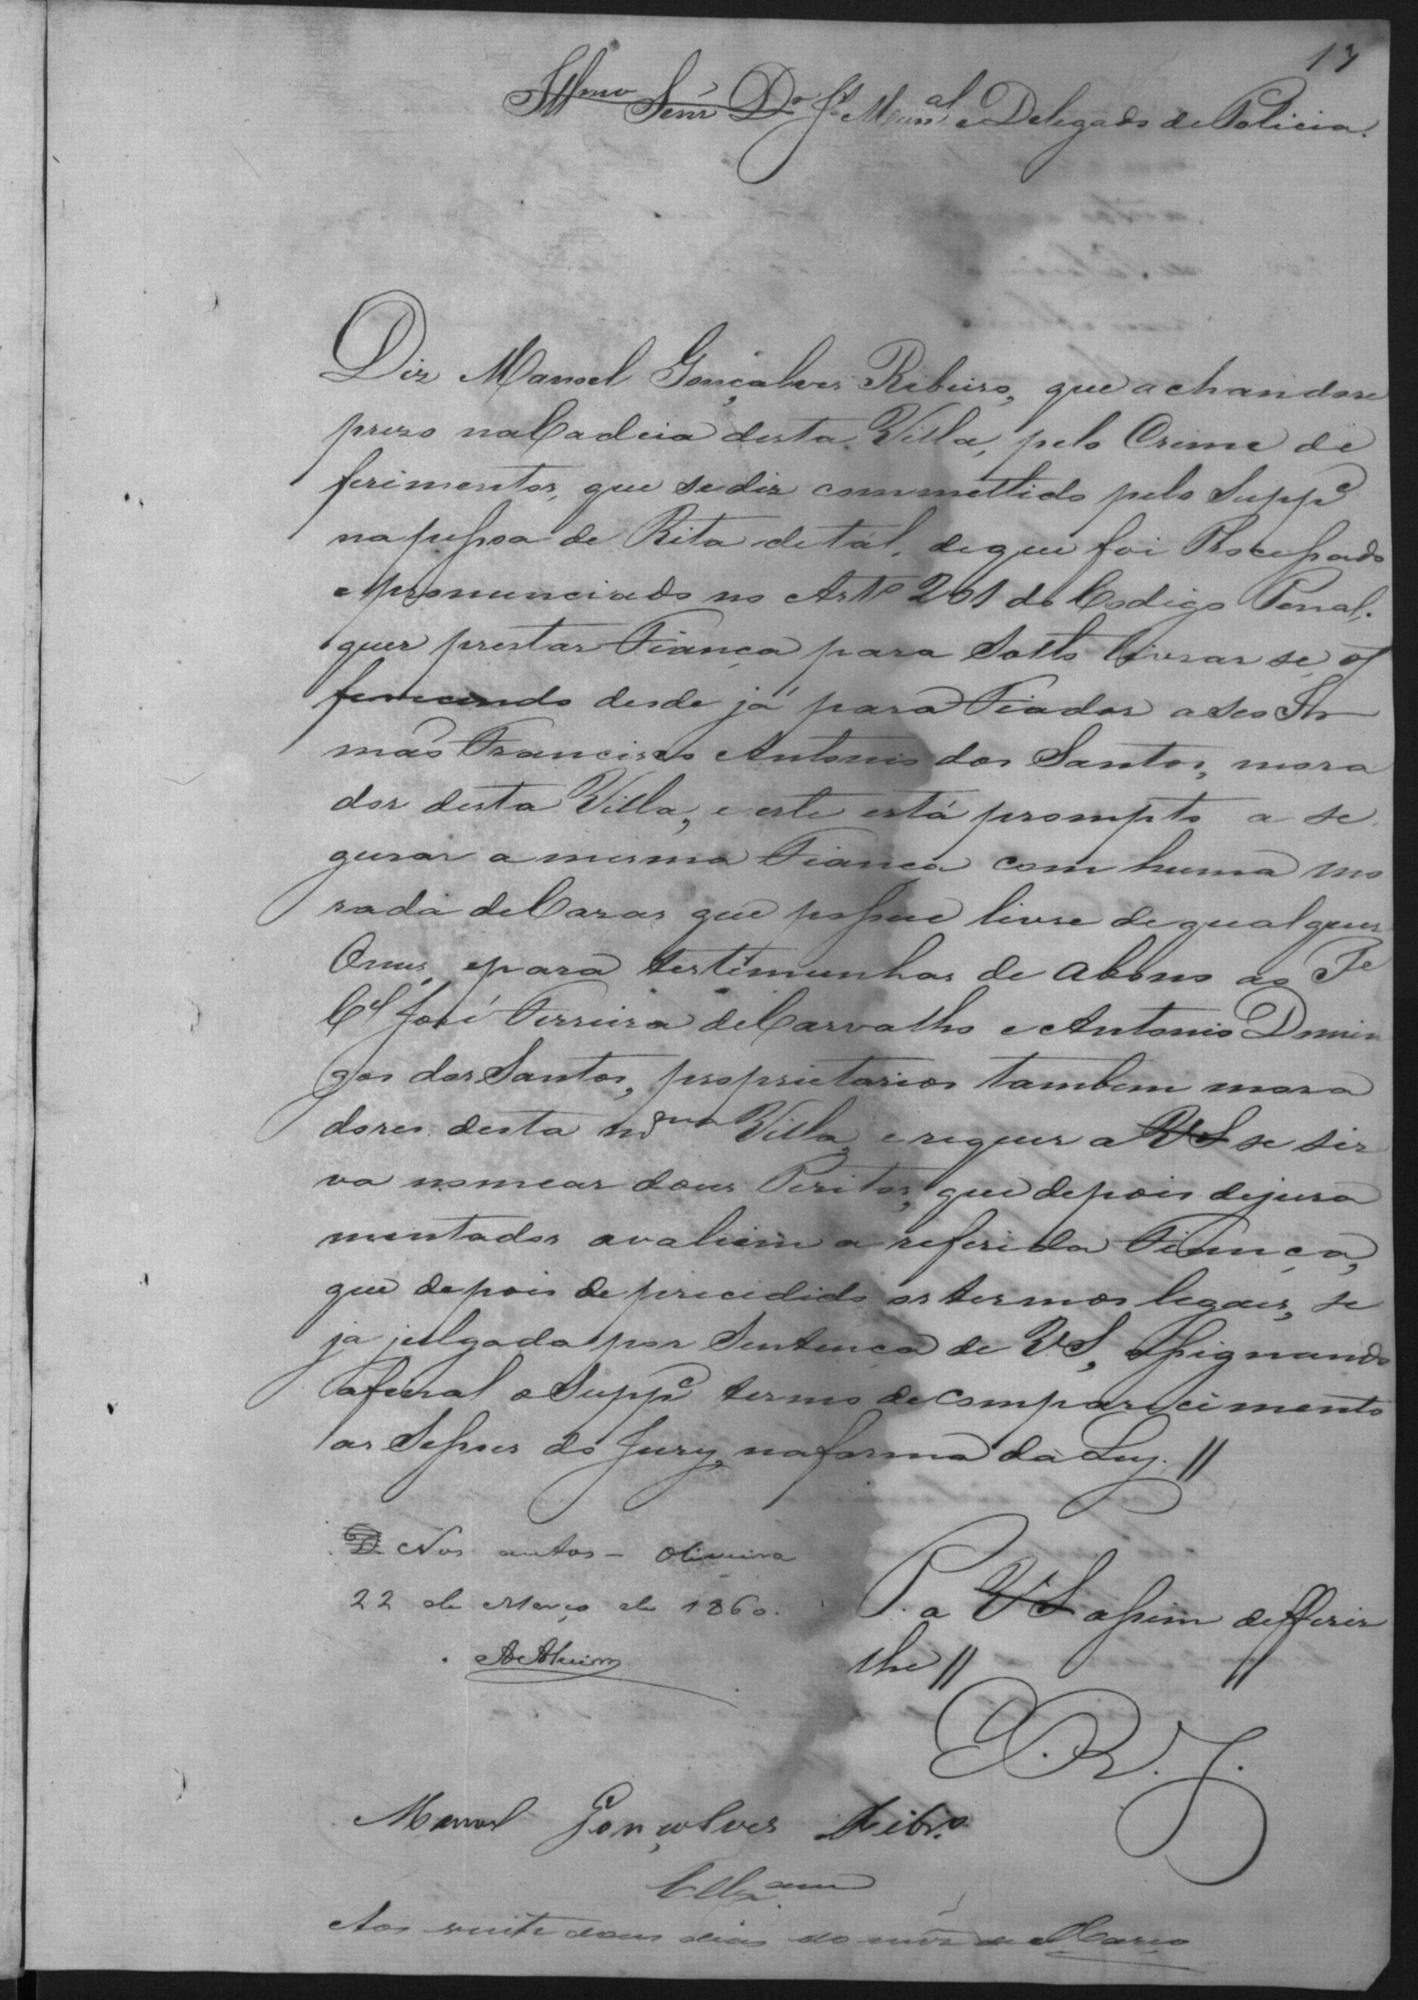 17
Illmo Senr Dor Jz Munal e Delegado de Policia.
Diz Manoel Gonçalves Ribeiro, que achandose
prezo na Cadeia desta Villa, pelo Crime de
ferimentos, que sediz commettido pelo Suppe
napessoa de Rita de tál, deque foi Processado
e pronunciado no Arto 201 do Codigo Penal,
quer prestar Fiança para Solto livrar se, of
ferecendo desde já para Fiador a seo Ir
mão Francisco Antonio dos Santos, mora
dor desta Villa, e este está prompto a se
gurar a mesma Fianca com huma mo
rada de Cazas que possue livre de qualquer
Onus, epara testimunhas de abono ao Te
Cel José Ferreira de Carvalho e Antonio Domin
gos dos Santos, proprietarios tambem mora
dores desta mma Villa, e requer a VS se sir
va nomear dous Peritos, que depois dejura
mentados avaliem a referida Fiança,
que depois de precedido os termos legaes, se
ja julgada por Sentença de VS, assignando
afinal o Suppe termo de comparecimento
as Sessoes do Jury, naforma da Ley. //
D Nos autos - Oliveira
22 de Março de 1860.
P. a VS assim defferir
lhe //
E. R. J.
Manoel Gonçalves Ribro
Aos vinte dous dias do mez de Março